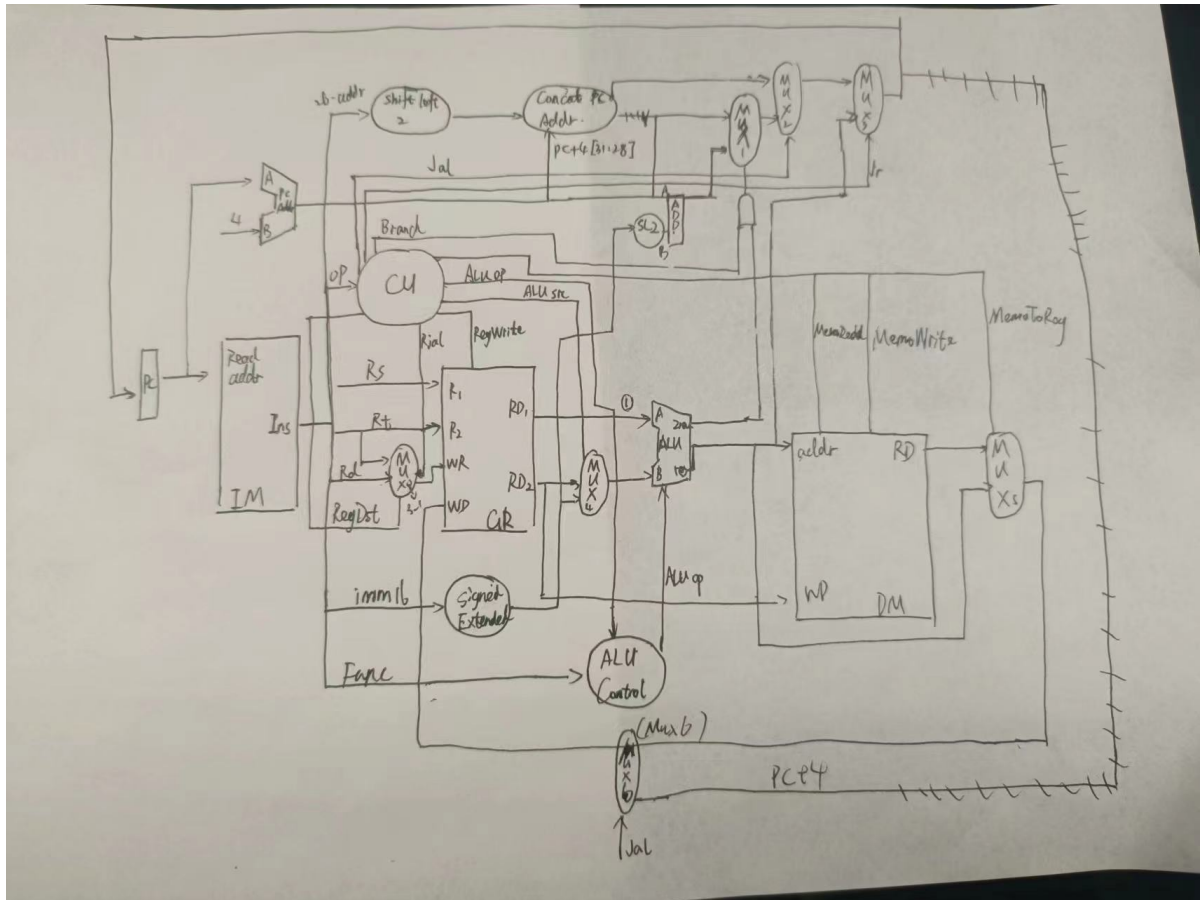 shift left
2
Concat PC
Addr.
PC+4[31:28]
MUX
1
MUX
2
MUX
3
Jal
Jr
A
PC
Add
B
4
Branch
SL2
A
ADD
B
OP
CU
ALU op
ALU src
Rjal
RegWrite
MemoRead
MemoWrite
MemoToReg
PC
Read
addr
Ins
IM
Rs
Rt
Rd
RegDst
MUX
R1
R2
WR
WD
GR
RD1
RD2
MUX
4
①
A
ALU
B
ALU op
addr
RD
WD
DM
MUX5
imm16
Signed
Extended
Func
ALU
Control
(Mux6)
MUX6
PC+4
Jal